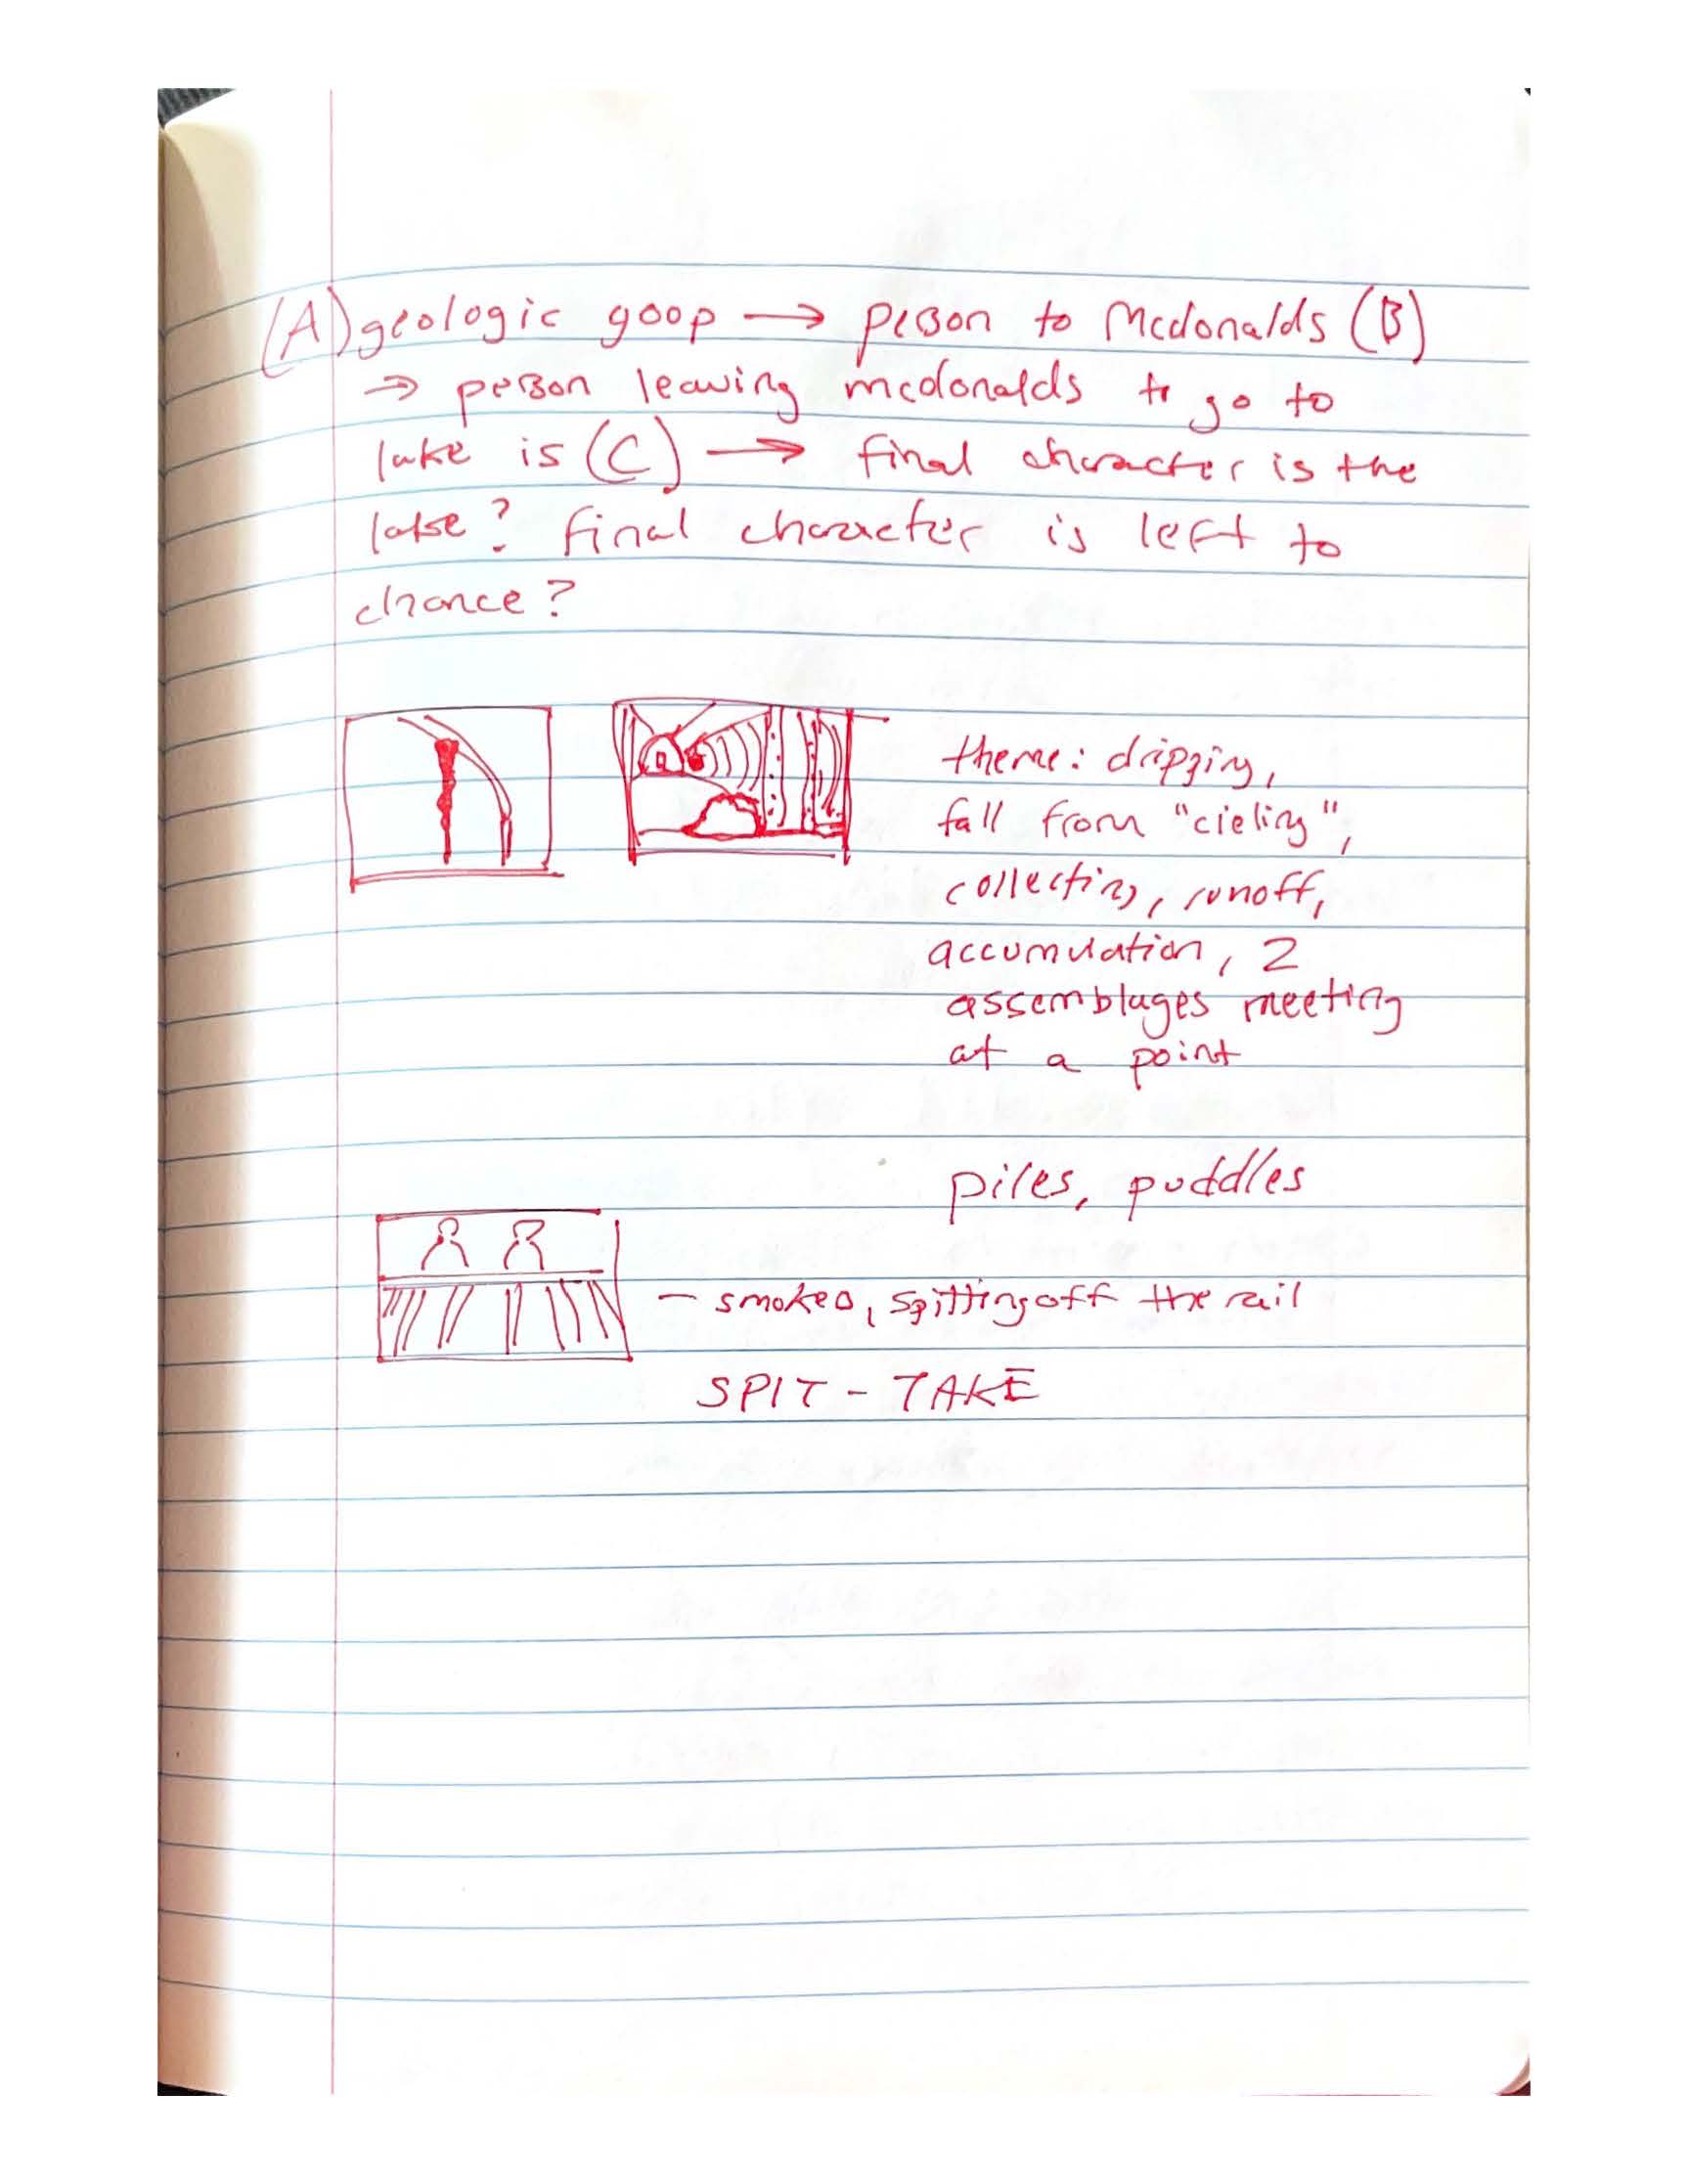 (A) geologic goop → person to Mcdonalds (B)
→ person leaving mcdonalds to go to
lake is (C) → final character is the
lake? final character is left to
chance?
theme: dripping,
fall from "cieling",
collecting, runoff,
accumulation, 2
assemblages meeting
at a point
piles, puddles
- smokes, spitting off the rail
SPIT - TAKE